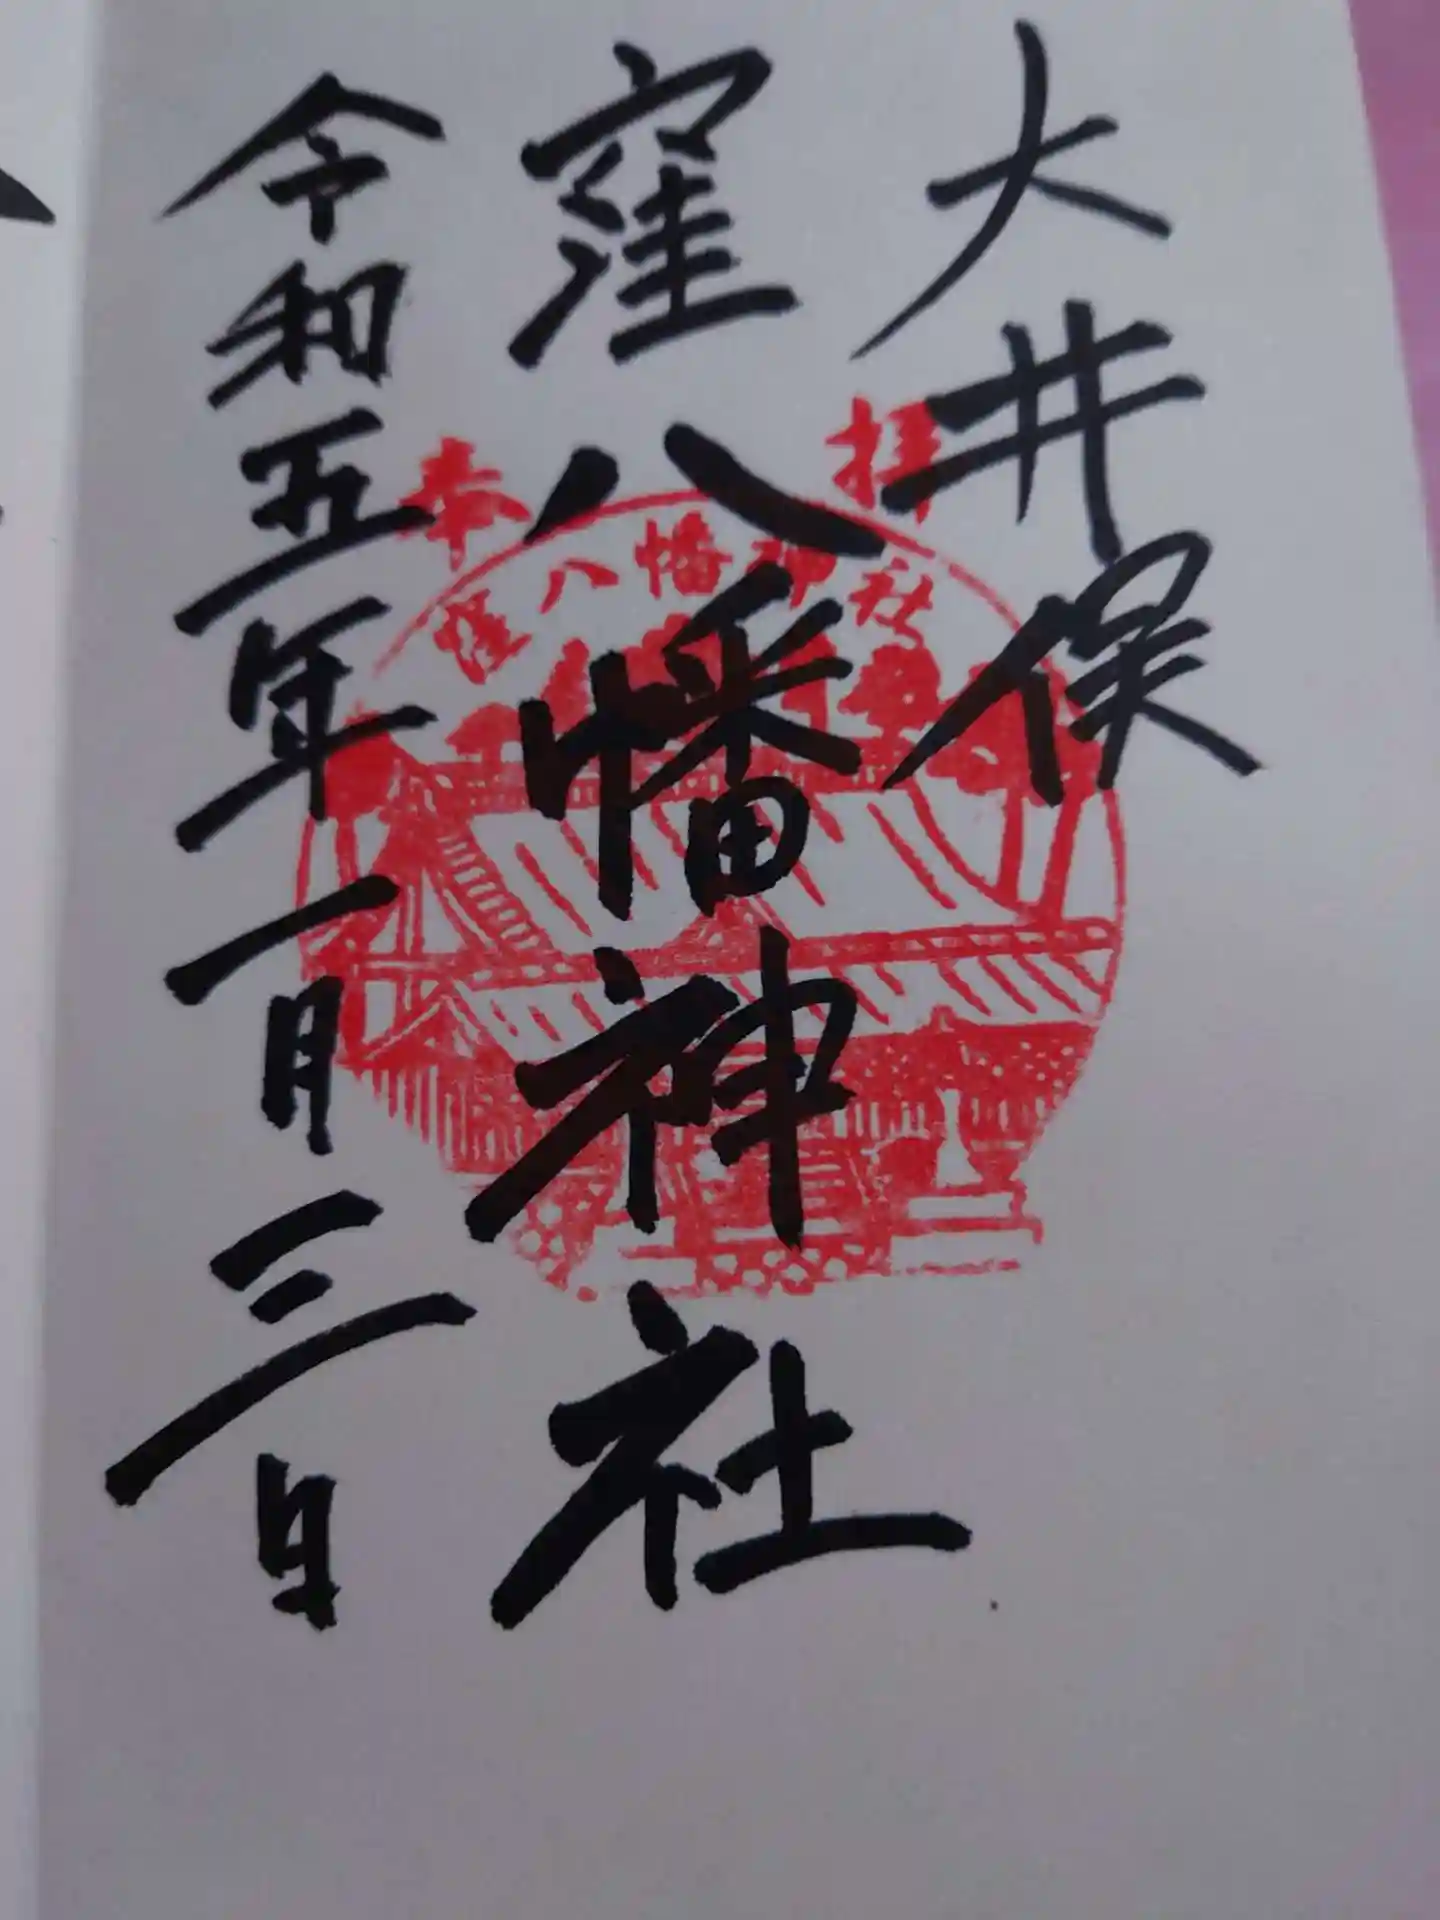 大井俣
窪八幡神社
令和五年一月三日
奉拝
窪八幡神社